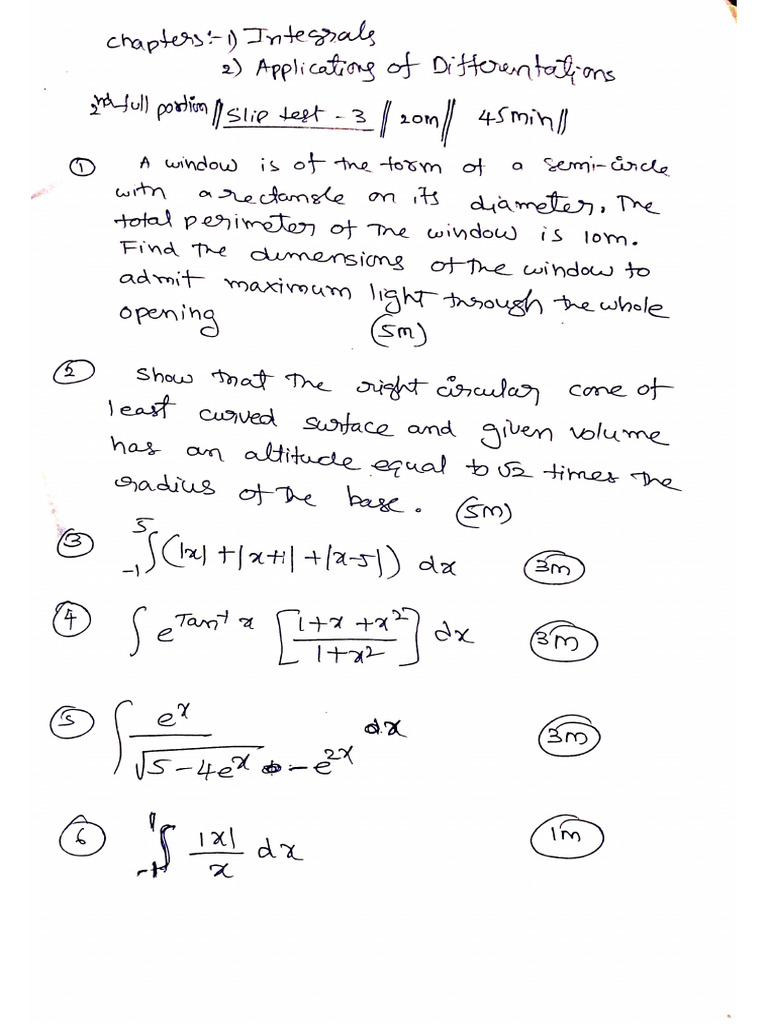 chapters:- 1) Integrals
2) Applications of Differentations
2nd full portion // Slip test - 3 // 20m // 45min //
① A window is of the form of a semi-circle
with a rectangle on its diameter, The
total perimeter of The window is 10m.
Find The dimensions of the window to
admit maximum light through the whole
opening (5m)
② Show that The right circular cone of
least curved surface and given volume
has an altitude equal to √2 times the
radius of the base. (5m)
③ ₋₁∫⁵ (|x| + |x+1| + |x-5|) dx (3m)
④ ∫ e^(Tan⁻¹ x) [(1+x+x²)/(1+x²)] dx (3m)
⑤ ∫ e^x / √(5-4e^x - e^2x) dx (3m)
⑥ ₋₁∫¹ |x|/x dx (1m)